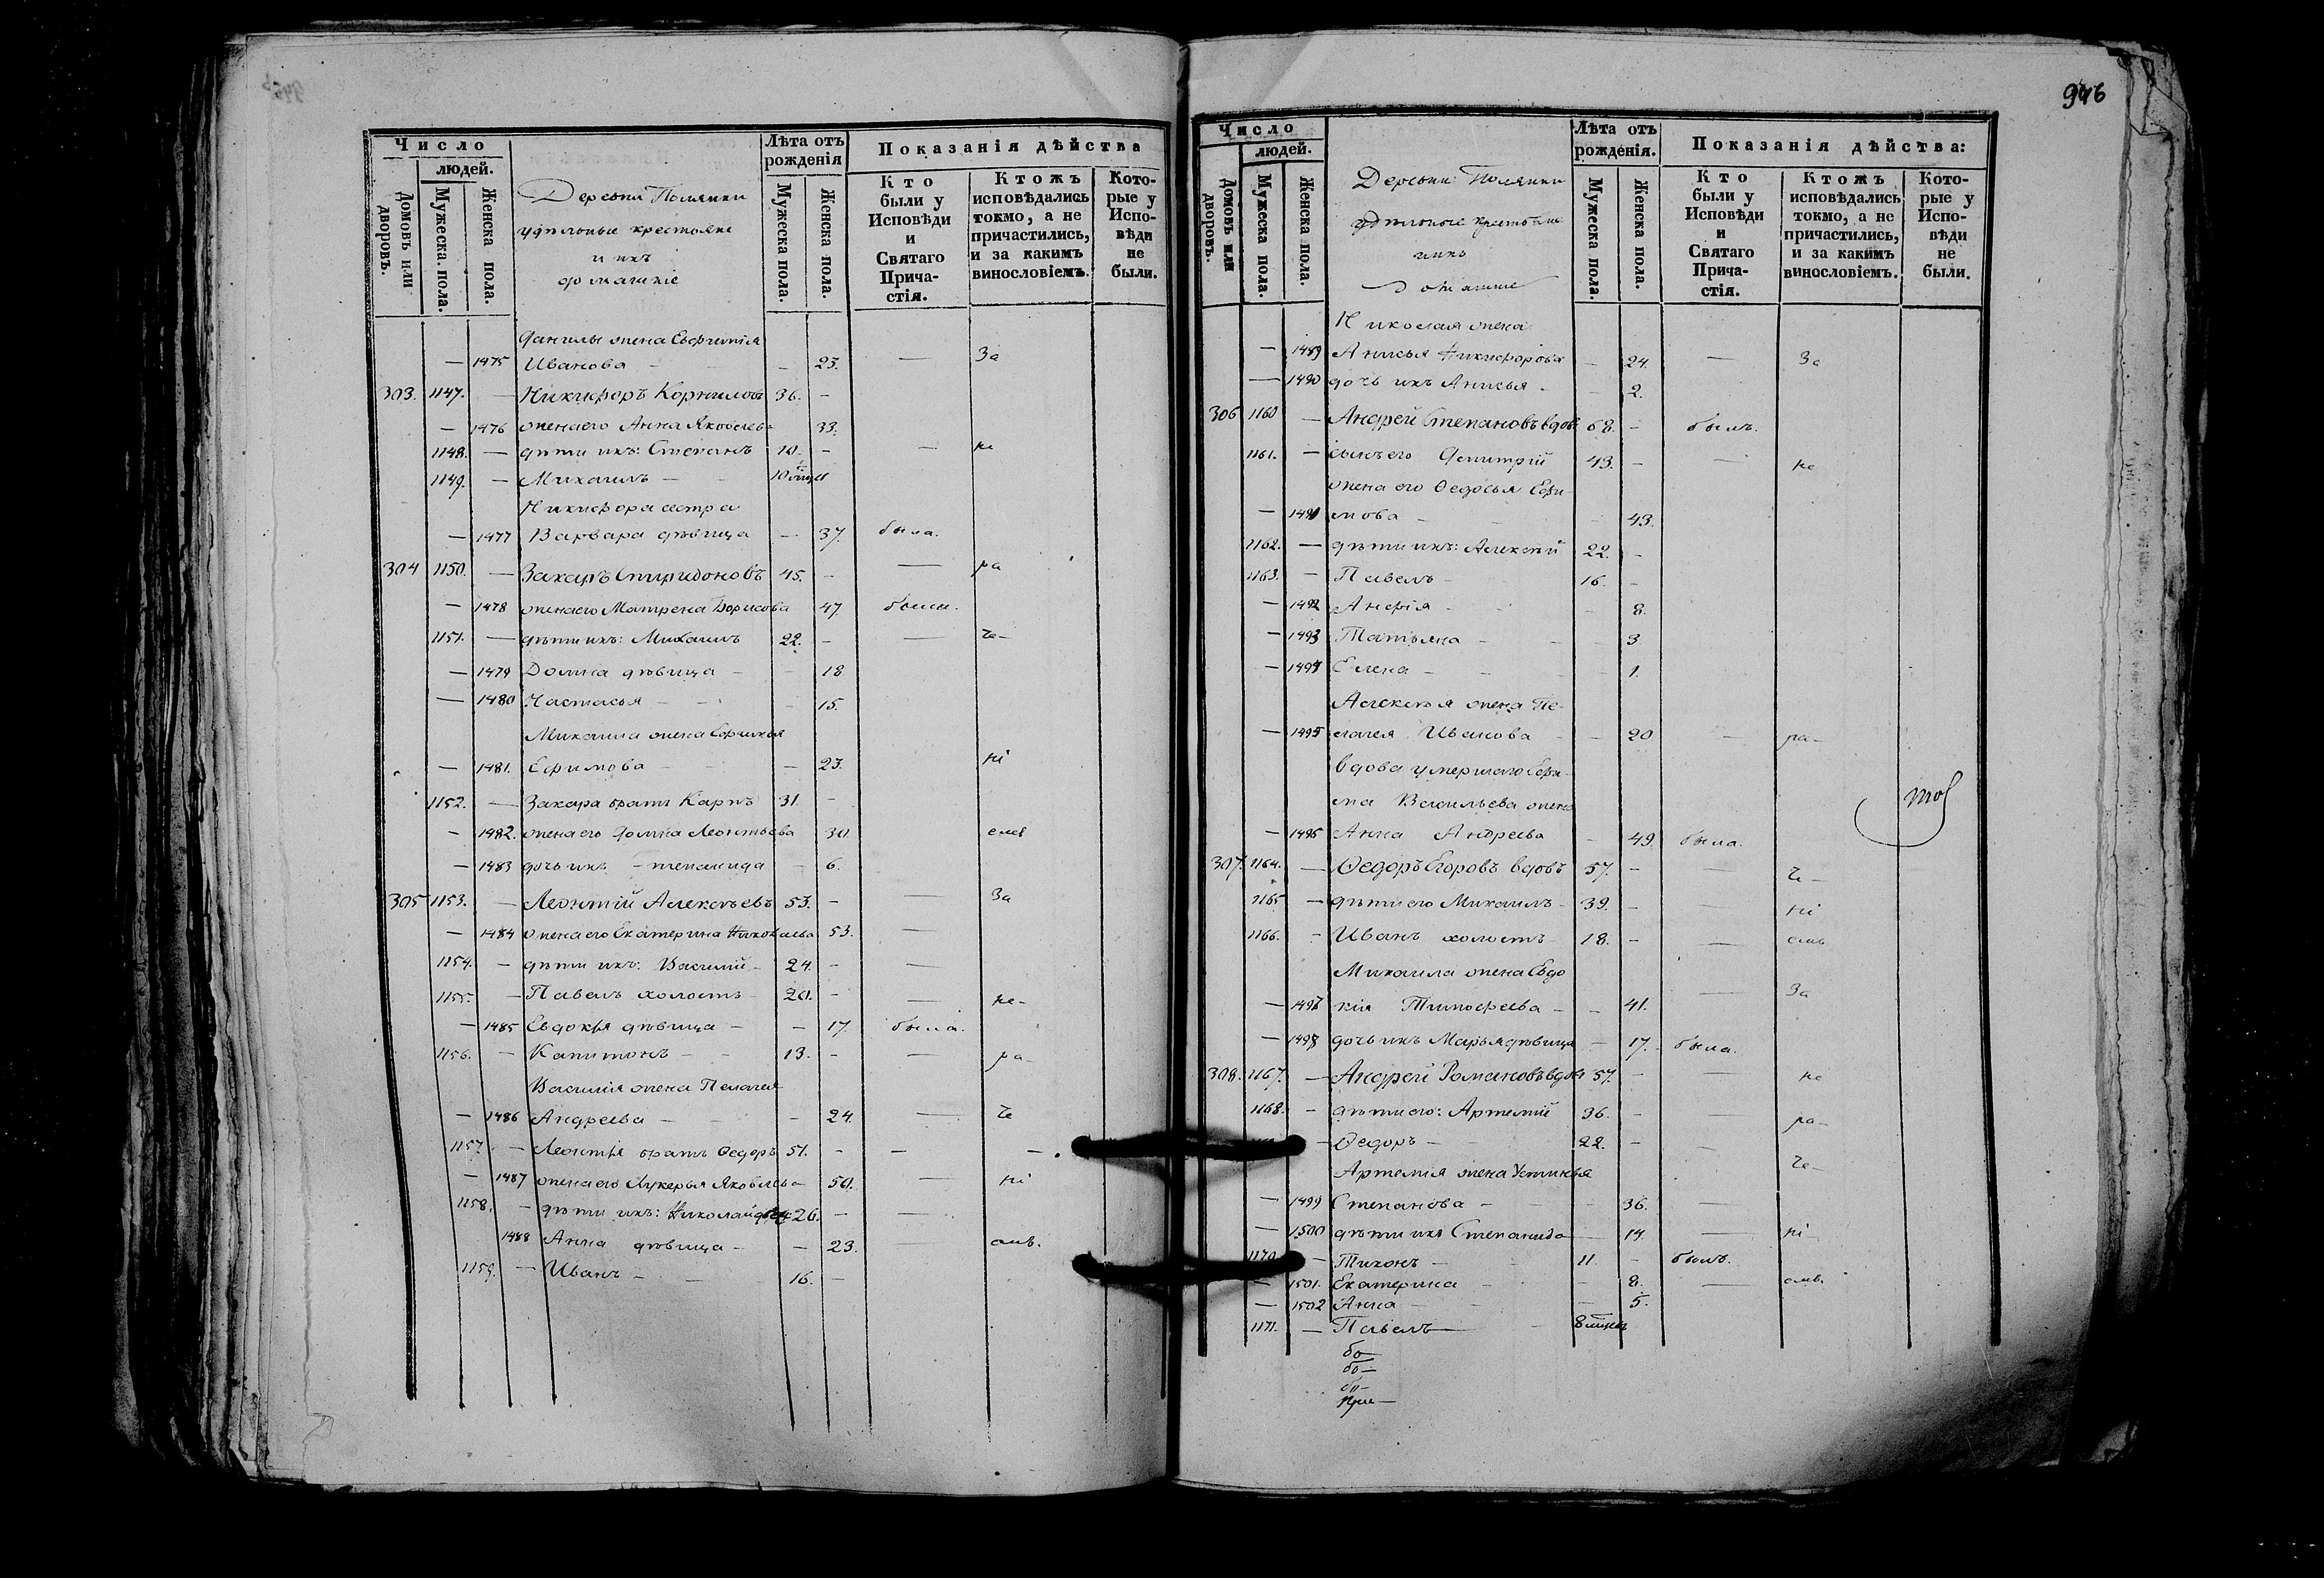 946
Число
людей.
Домовъ или дворовъ.
Мужеска пола.
Женска пола.
Деревни Полянки
удѣльные крестьяне
и ихъ
домашніе
Лѣта отъ рожденія
Мужеска пола.
Женска пола.
Показанія дѣйства
Кто были у Исповѣди и Святаго Причастія.
Ктожъ исповѣдались токмо, а не причастились, и за какимъ винословіемъ.
Которые у Исповѣди не были.
Данилы жена Евфимія
— 1475 Иванова — 23. — За
303. 1147. — Никифоръ Корниловъ 36. —
— 1476 жена его Анна Яковлева 33.
1148. — дѣти ихъ: Степанъ 10. — — не
1149. — Михаилъ — 10
Никифора сестра
— 1477 Варвара дѣвица — 37. была.
304 1150. — Захаръ Спиридоновъ 45. — — ра
— 1478 жена его Матрена Борисова 47.
1151. — дѣти ихъ: Михаилъ 22. — — че—
— 1479 Домна дѣвица — 18
— 1480 Настасья — 15.
Михаила жена
— 1481. Ефимова — 23. ні
1152. — Захара братъ Карпъ 31. —
— 1482. жена его Домна Леонтьева 30. емъ
— 1483 дочь ихъ Степанида — 6.
305 1153. — Леонтій Алексѣевъ 53. — — За
— 1484 жена его Екатерина Николаева 53. —
1154. — дѣти ихъ: Василій — 24. — —
1155. — Павелъ холостъ 20. — — не—
— 1485 Евдокія дѣвица — — 17. была.
1156. — Капитонъ — 13. — — ра—
Василія жена Пелагея
— 1486 Андреева — — 24. — че
1157. — Леонтія братъ Ѳедоръ 51. — — —
— 1487 жена его Лукерья Яковлева 50. — ні
1158. — дѣти ихъ: Николай 26. — —
1488 Анна дѣвица — — 23. емъ.
1159. — Иванъ — 16. —
Число
людей.
Домовъ или дворовъ.
Мужеска пола.
Женска пола.
Деревни Полянки
удѣльные крестьяне
и ихъ
домашніе
Лѣта отъ рожденія.
Мужеска пола.
Женска пола.
Показанія дѣйства:
Кто были у Исповѣди и Святаго Причастія.
Ктожъ исповѣдались токмо, а не причастились, и за какимъ винословіемъ.
Которые у Исповѣди не были.
Николая жена
— 1489 Анисья Никифорова — 24. — За
— 1490 дочь ихъ Анисья — 2.
306 1160 — Андрей Степановъ вдовъ 68. — былъ.
1161. — сынъ его Димитрій 43. — — не
жена его Ѳедосья Ефи
— 1491 мова — 43.
1162. — дѣти ихъ: Алексѣй 22. —
1163. — Павелъ — 16. —
— 1492 — 8.
— 1493 Татьяна — 3
— 1494 Елена — 1.
Алексѣя жена Пе
— 1495 лагея Иванова — 20 — ра—
вдова умершаго Ефи
ма Васильева жена
— 1496 Анна Андреева 49. была.
307. 1164. — Ѳедоръ Егоровъ вдовъ 57. — — че—
1165 — дѣти его Михаилъ — 39. — — ні
1166. — Иванъ холостъ 18. — — емъ
Михаила жена Евдо
— 1497 кія Тимофеева — — 41. За
— 1498 дочь ихъ Марья дѣвица — 17. была.
308. 1167. — Андрей Романовъ вдовъ 57. — — не
1168. — дѣти его: Артемій 36. — ра—
— Ѳедоръ — 22. — — че—
Артемія жена Устинья
— 1499 Степанова — 36. —
— 1500 дѣти ихъ Степанида — 14. — ні—
1170 — Тихонъ — 11 — былъ.
— 1501. Екатерина — 8. — емъ
— 1502 Анна — 5.
1171. — Павелъ — 8
бо—
бо—
бо—
при—